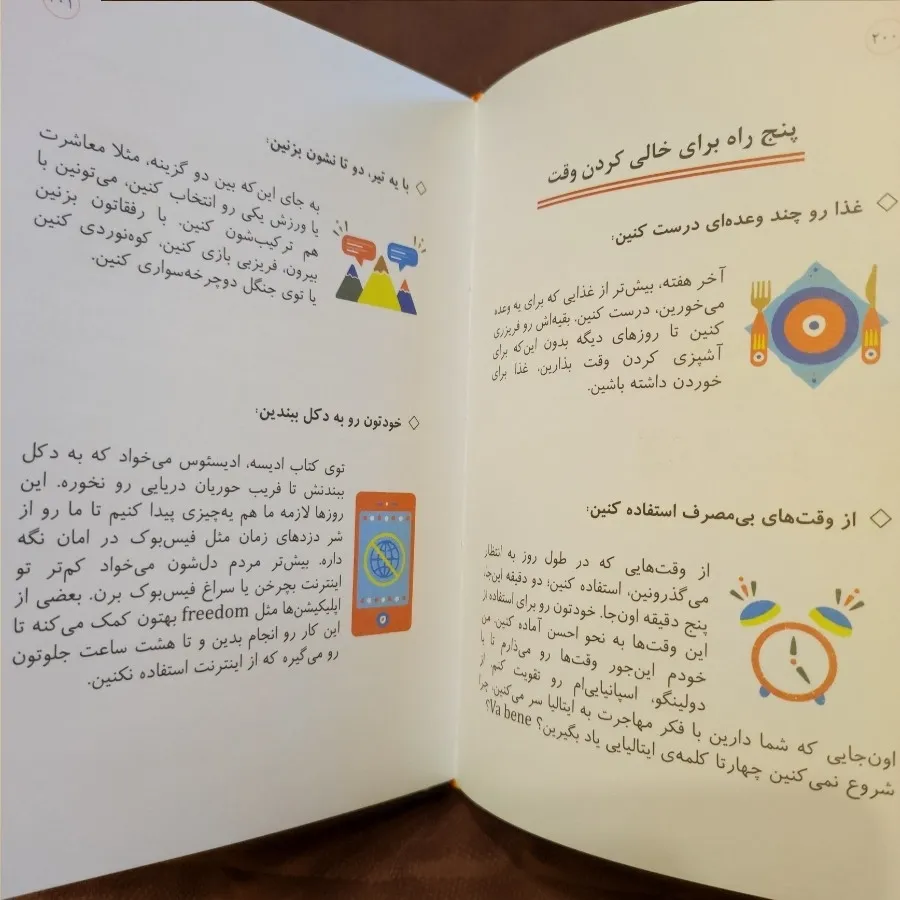 ۲۰۰
پنج راه برای خالی کردن وقت
غذا رو چند وعده‌ای درست کنین:
آخر هفته، بیش‌تر از غذایی که برای یه وعده
می‌خورین، درست کنین. بقیه‌اش رو فریزری
کنین تا روزهای دیگه بدون این‌که برای
آشپزی کردن وقت بذارین، غذا برای
خوردن داشته باشین.
از وقت‌های بی‌مصرف استفاده کنین:
از وقت‌هایی که در طول روز به انتظار
می‌گذرونین، استفاده کنین؛ دو دقیقه این‌جا،
پنج دقیقه اون‌جا. خودتون رو برای استفاده از
این وقت‌ها به نحو احسن آماده کنین. من
خودم این‌جور وقت‌ها رو می‌ذارم تا با
دولینگو، اسپانیایی‌ام رو تقویت کنم. از
اون‌جایی که شما دارین با فکر مهاجرت به ایتالیا سر می‌کنین، چرا
شروع نمی‌کنین چهارتا کلمه‌ی ایتالیایی یاد بگیرین؟ Va bene؟
با یه تیر، دو تا نشون بزنین:
به جای این‌که بین دو گزینه، مثلا معاشرت
یا ورزش یکی رو انتخاب کنین، می‌تونین با
هم ترکیب‌شون کنین. با رفقاتون بزنین
بیرون، فریزبی بازی کنین، کوه‌نوردی کنین
یا توی جنگل دوچرخه‌سواری کنین.
خودتون رو به دکل ببندین:
توی کتاب ادیسه، ادیسئوس می‌خواد که به دکل
ببندنش تا فریب حوریان دریایی رو نخوره. این
روزها لازمه ما هم یه‌چیزی پیدا کنیم تا ما رو از
شر دزدهای زمان مثل فیس‌بوک در امان نگه
داره. بیش‌تر مردم دل‌شون می‌خواد کم‌تر تو
اینترنت بچرخن یا سراغ فیس‌بوک برن. بعضی از
اپلیکیشن‌ها مثل freedom بهتون کمک می‌کنه تا
این کار رو انجام بدین و تا هشت ساعت جلوتون
رو می‌گیره که از اینترنت استفاده نکنین.